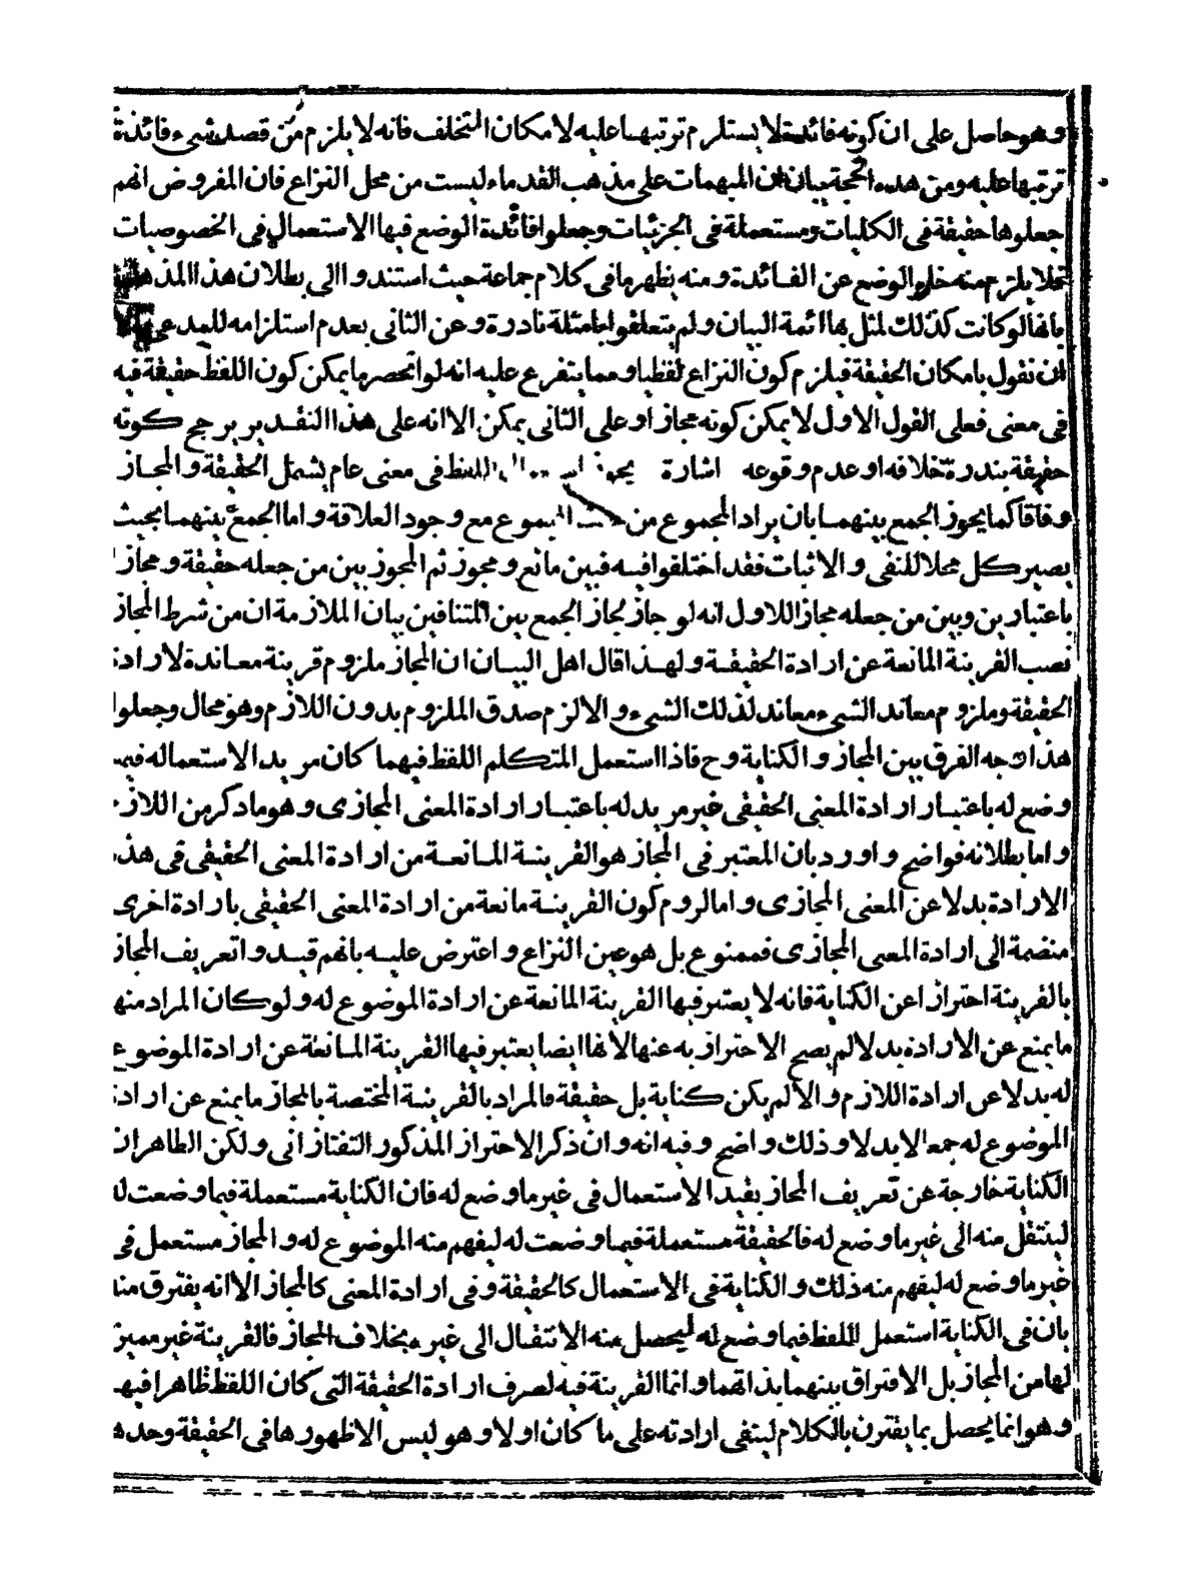 وهو حاصل على ان كونه فائدة لا يستلزم ترتبها عليه لامكان التخلف فانه لا يلزم من قصد شيء فائدة
ترتبها عليه ومن هذه الحجة بيان ان المبهمات على مذهب القدماء ليست من محل النزاع فان المفروض انهم
جعلوها حقيقة في الكليات ومستعملة في الجزئيات وجعلوا فائدة الوضع فيها الاستعمال في الخصوصيات
فلا يلزم منه خلو الوضع عن الفائدة ومنه يظهر ما في كلام جماعة حيث استندوا الى بطلان هذا المذهب
بانها لو كانت كذلك لمثل بها ائمة البيان ولم يتعلقوا بامثلة نادرة وعن الثاني بعدم استلزامه للمدعى
ان نقول بامكان الحقيقة فيلزم كون النزاع لفظيا ومما يتفرع عليه انه لو انحصر ما يمكن كون اللفظ حقيقة فيه
في معنى فعلى القول الاول لا يمكن كونه مجازا وعلى الثاني يمكن الا انه على هذا التقدير يرجح كونه
حقيقة بندرة خلافه او عدم وقوعه اشارة اللفظ في معنى عام يشمل الحقيقة والمجاز
وفاقا كما يجوز الجمع بينهما بان يراد المجموع من المجموع مع وجود العلاقة واما الجمع بينهما بحيث
يصير كل محلا للنفى والاثبات فقد اختلفوا فيه فبين مانع ومجوز ثم المجوز بين من جعله حقيقة ومجازا
باعتبارين وبين من جعله مجازا للاول انه لو جاز لجاز الجمع بين المتنافيين بيان الملازمة ان من شرط المجاز
نصب القرينة المانعة عن ارادة الحقيقة ولهذا قال اهل البيان ان المجاز ملزوم قرينة معاندة لارادة
الحقيقة وملزوم معاند الشيء معاند لذلك الشيء والا لزم صدق الملزوم بدون اللازم وهو محال وجعلوا
هذا وجه الفرق بين المجاز والكناية وح فاذا استعمل المتكلم اللفظ فيهما كان مريدا لاستعماله فيما
وضع له باعتبار ارادة المعنى الحقيقى غير مريد له باعتبار ارادة المعنى المجازى وهو ما ذكر من اللازم
واما بطلانه فواضح واورد بان المعتبر في المجاز هو القرينة المانعة من ارادة المعنى الحقيقى في هذه
الارادة بدلا عن المعنى المجازى واما لزوم كون القرينة مانعة من ارادة المعنى الحقيقى بارادة اخرى
منضمة الى ارادة المعنى المجازى فممنوع بل هو عين النزاع واعترض عليه بانهم قيدوا تعريف المجاز
بالقرينة احترازا عن الكناية فانه لا يعتبر فيها القرينة المانعة عن ارادة الموضوع له ولو كان المراد منها
ما يمنع عن الارادة بدلا لم يصح الاحتراز به عنها لانها ايضا يعتبر فيها القرينة المانعة عن ارادة الموضوع
له بدلا عن ارادة اللازم والا لم يكن كناية بل حقيقة فالمراد بالقرينة المختصة بالمجاز ما يمنع عن ارادة
الموضوع له جمعا لا بدلا وذلك واضح وفيه انه وان ذكر الاحتراز المذكور التفتازانى ولكن الظاهر ان
الكناية خارجة عن تعريف المجاز بقيد الاستعمال في غير ما وضع له فان الكناية مستعملة فيما وضعت له
لينتقل منه الى غير ما وضع له فالحقيقة مستعملة فيما وضعت له ليفهم منه الموضوع له والمجاز مستعمل في
غير ما وضع له ليفهم منه ذلك والكناية في الاستعمال كالحقيقة وفي ارادة المعنى كالمجاز الا انه يفترق منها
بان في الكناية استعمل اللفظ فيما وضع له ليحصل منه الانتقال الى غيره بخلاف المجاز فالقرينة غير مميزة
لها من المجاز بل الافتراق بينهما بذاتهما وانما القرينة فيه لصرف ارادة الحقيقة التى كان اللفظ ظاهرا فيها
وهو انما يحصل بما يقترن بالكلام لينفى ارادته على ما كان اولا وهو ليس الا ظهورها في الحقيقة وحدها